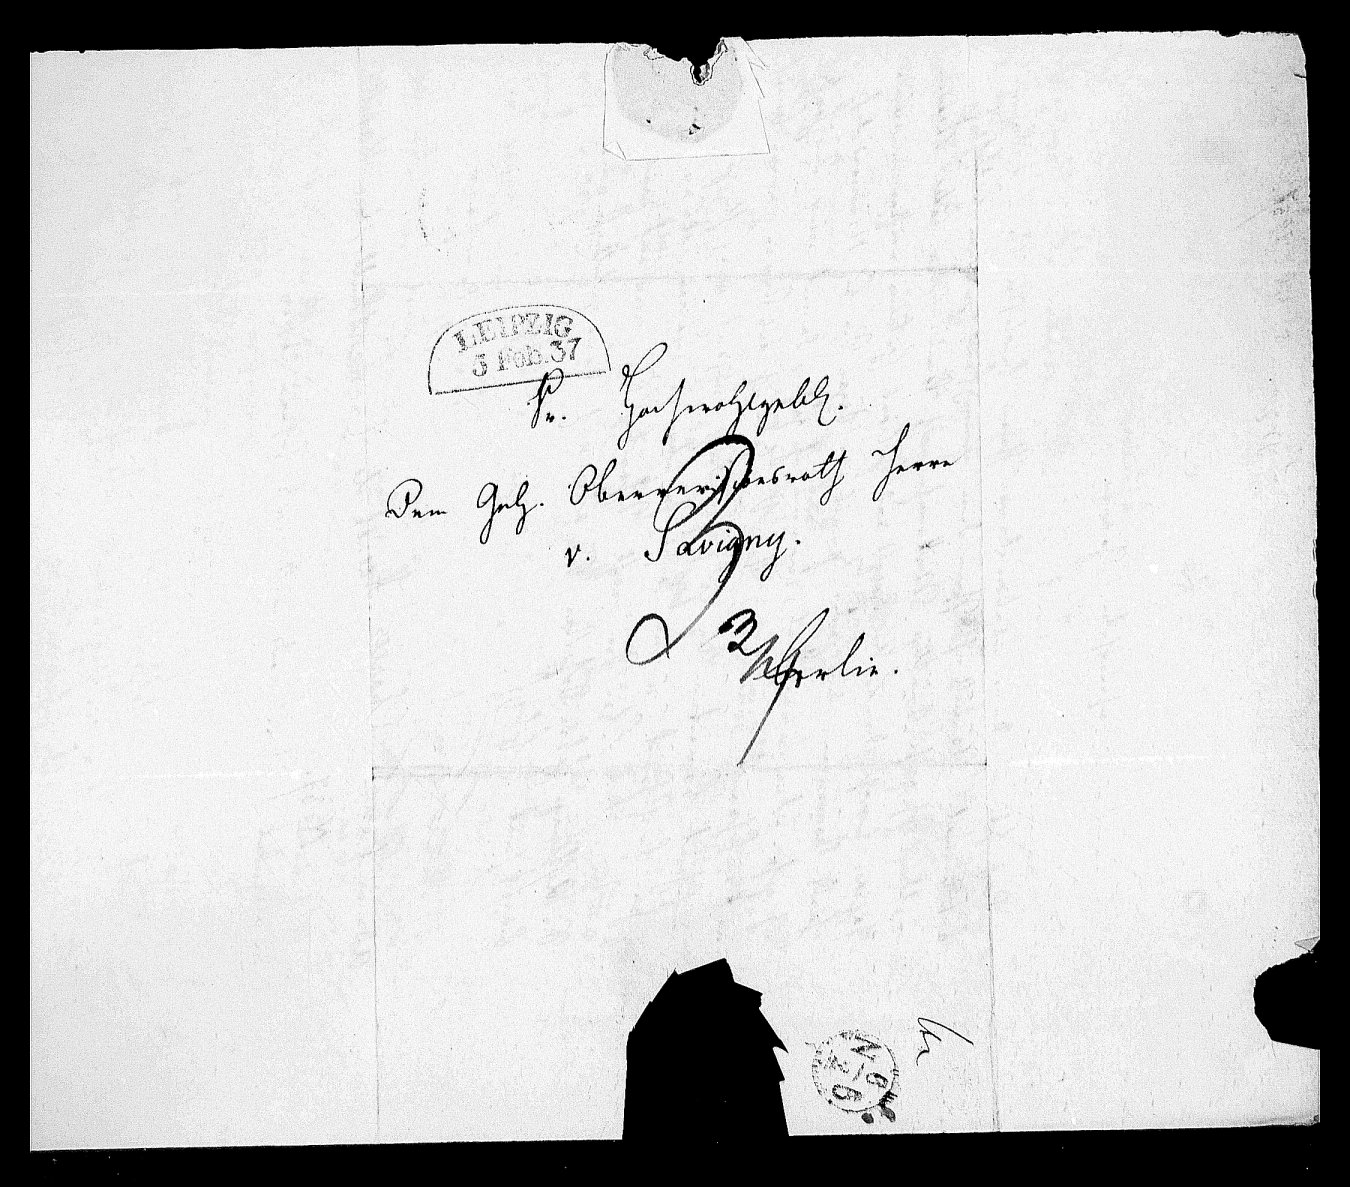 LEIPZIG
5 Feb. 37
Sr. Hochwohlgeb.
Dem Geh. Oberrevisionsrath Herrn
v. Savigny.
3
Berlin.
N
6